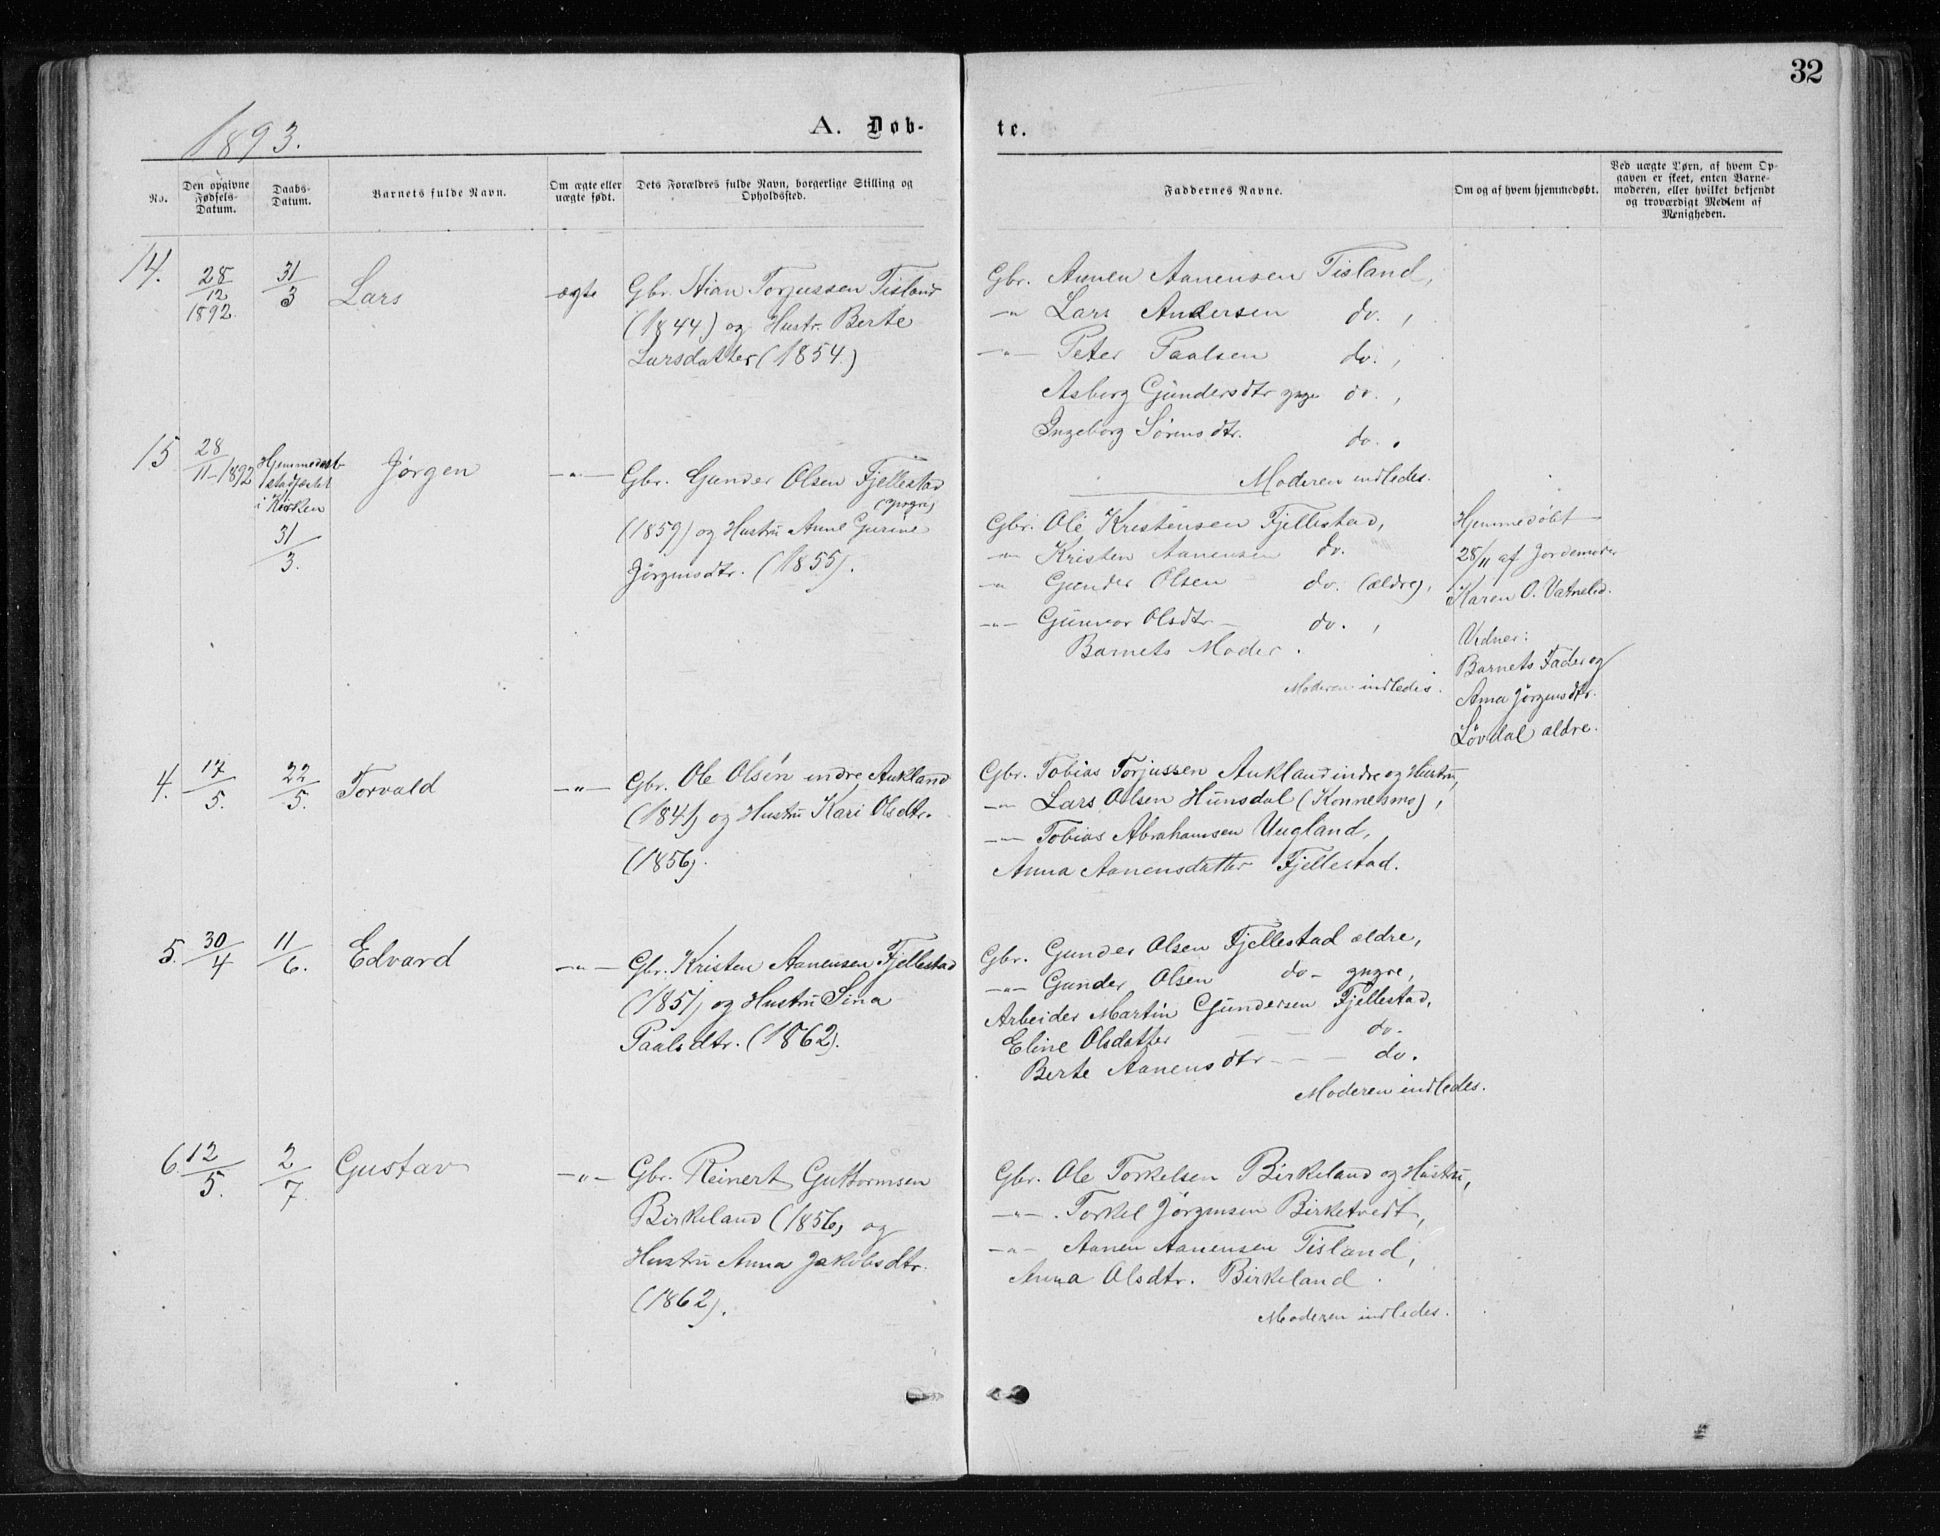 32
1893.
A. Døb-
te.
No.
Den opgivne Fødsels-Datum.
Daabs-Datum.
Barnets fulde Navn.
Om ægte eller uægte født.
Dets Forældres fulde Navn, borgerlige Stilling og Opholdssted.
Faddernes Navne.
Om og af hvem hjemmedøbt.
Ved uægte Børn, af hvem Opgaven er skeet, enten Barnemoderen, eller hvilket bekjendt og troværdigt Medlem af Menigheden.
14.
28/12 1892.
31/3
Lars
ægte
Gbr. Stian Torjussen Tisland
(1844) og Hustr. Berte
Larsdatter (1854.)
Gbr. Aanen Aanensen Tisland,
-"- Lars Andersen do. ,
-"- Peter Paalsen do. ,
Asborg Gundersdtr yngr do. ,
Ingeborg Sørensdtr. do. .
Moderen indledes.
15
28/11-1892
Hjemmedaab
stadfæstet
i Kirken
31/3.
Jørgen
-"-
Gbr. Gunder Olsen Fjellestad
(yngre)
(1859) og Hustru Anne Gurine
Jørgensdtr. (1855).
Gbr. Ole Kristensen Fjellestad,
-"- Kristen Aanensen do.
-"- Gunder Olsen do. (ældre),
-"- Gunvor Olsdtr. do. ,
Barnets Moder.
Moderen indledes.
Hjemmedøbt
28/11 af Jordemoder
Karen O. Vatnelid.
Vidner:
Barnets Fader og
Anna Jørgensdtr.
Løvdal ældre.
4.
17/5.
22/5.
Torvald
-"-
Gbr. Ole Olsen indre Aukland
(1841) og Hustru Kari Olsdtr.
(1856).
Gbr. Tobias Torjussen Aukland indre og Hustru,
-"- Lars Olsen Hunsdal (Konnesmo),
-"- Tobias Abrahamsen Ungland,
Anna Aanensdatter Fjellestad.
5.
30/4
11/6.
Edvard
-"-
Gbr. Kristen Aanensen Fjellestad
(1851) og Hustru Sina
Paalsdtr. (1862).
Gbr. Gunder Olsen Fjellestad ældre,
-"- Gunder Olsen do- yngre,
Arbeider Martin Gundersen Fjellestad,
Eline Olsdatter - - do.
Berte Aanensdtr - - - do.
Moderen indledes.
6.
12/5.
2/7.
Gustav
-"-
Gbr. Reinert Guttormsen
Birkeland (1856) og
Hustru Anna Jakobsdtr.
(1862).
Gbr. Ole Torkelsen Birkeland og Hustru,
-"- Torkel Jørgensen Birketvedt,
-"- Aanen Aanensen Tisland,
Anna Olsdtr. Birkeland.
Moderen indledes.